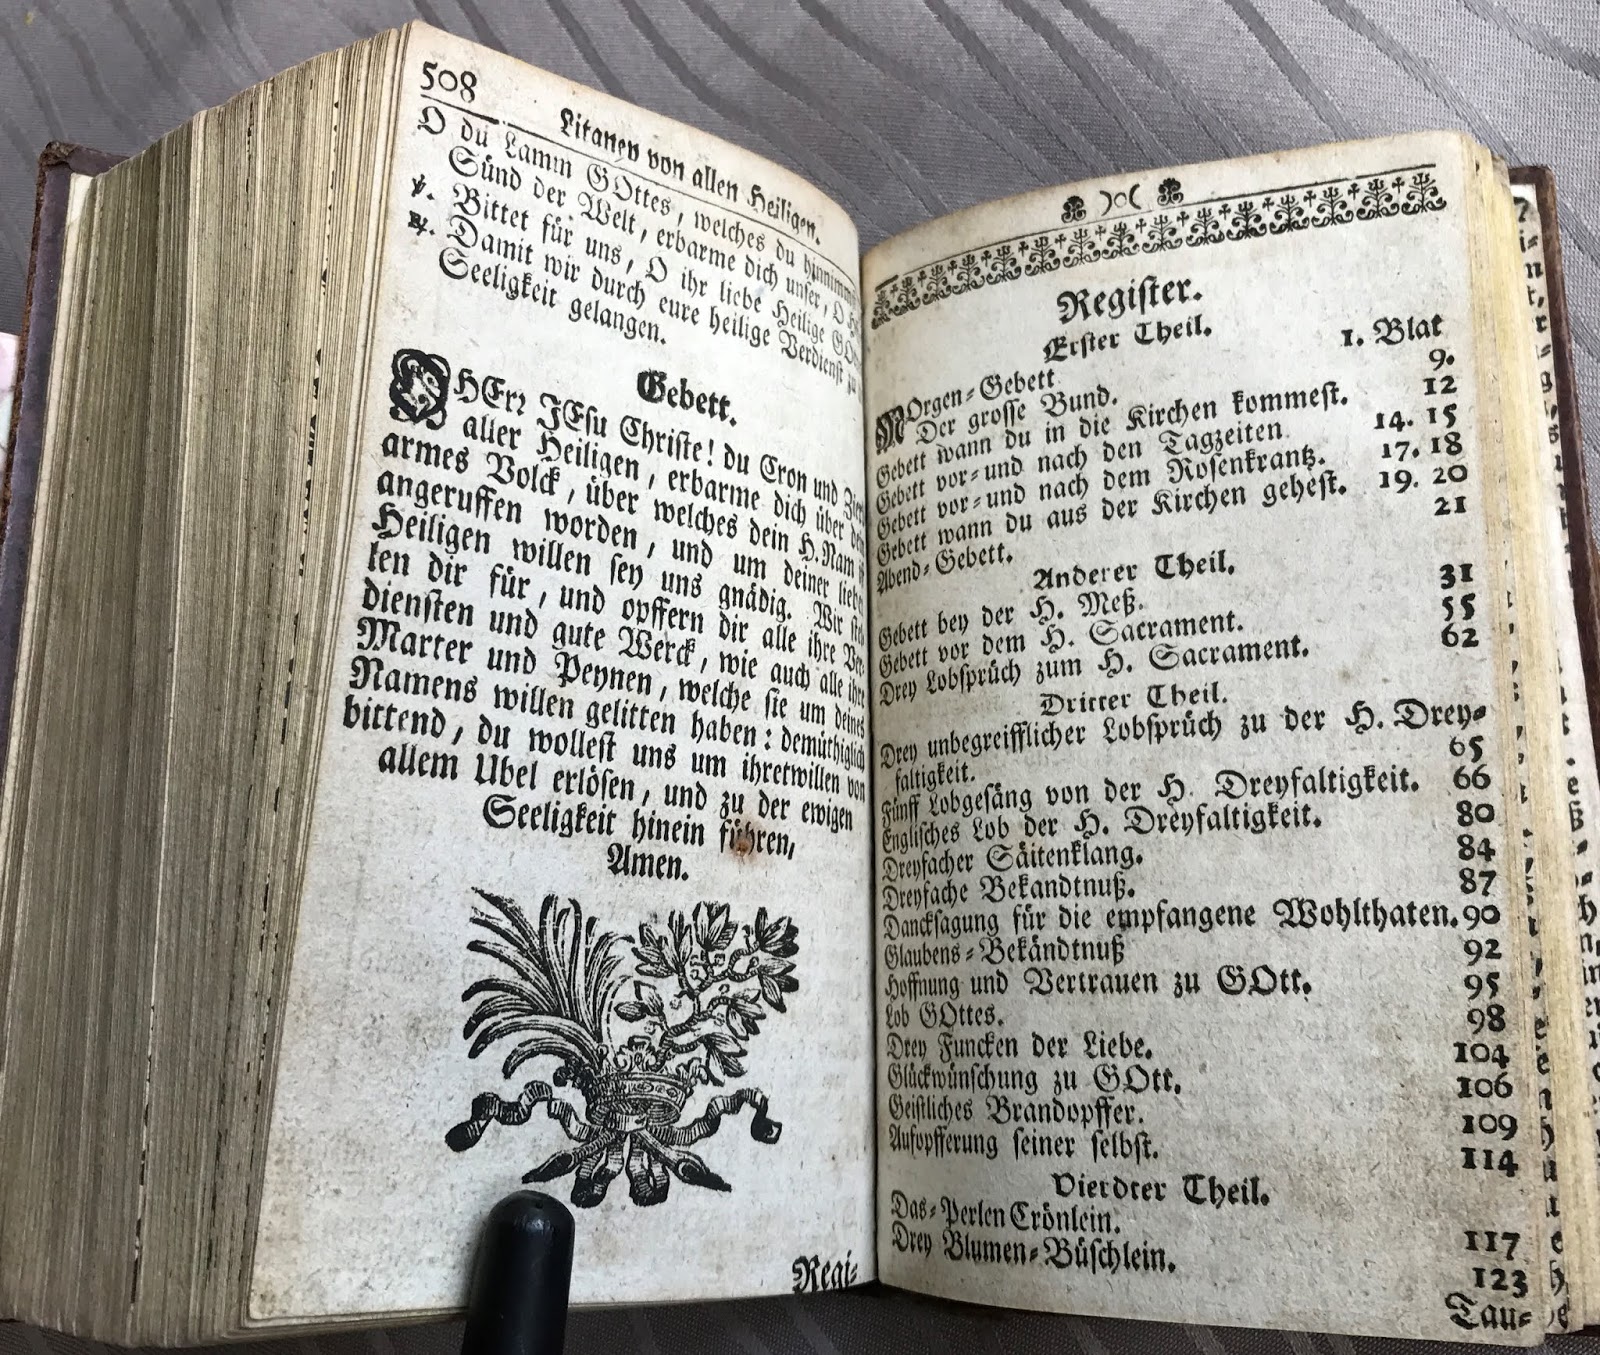 508
Litaney von allen Heiligen.
O du Lamm GOttes, welches du hinnimmst
Sünd der Welt, erbarme dich unser, O
℣. Bittet für uns, O ihr liebe Heilige GO
℟. Damit wir durch eure heilige Verdienst zu
Seeligkeit gelangen.
Gebett.
O HErr JEsu Christe! du Cron und Zierd
aller Heiligen, erbarme dich über dein
armes Volck, über welches dein H. Nam ist
angeruffen worden, und um deiner liebe
Heiligen willen sey uns gnädig. Wir stel
len dir für, und opffern dir alle ihre Ver-
diensten und gute Werck, wie auch alle ihre
Marter und Peynen, welche sie um deines
Namens willen gelitten haben: demüthiglich
bittend, du wollest uns um ihretwillen von
allem Ubel erlösen, und zu der ewigen
Seeligkeit hinein führen,
Amen.
Regi-
)o(
Register.
Erster Theil.
MOrgen-Gebett 1. Blat
Der grosse Bund. 9.
Gebett wann du in die Kirchen kommest. 12
Gebett vor-und nach den Tagzeiten 14. 15
Gebett vor-und nach dem Rosenkrantz. 17. 18
Gebett wann du aus der Kirchen gehest. 19. 20
Abend-Gebett. 21
Anderer Theil.
Gebett bey der H. Meß. 31
Gebett vor dem H. Sacrament. 55
Drey Lobsprüch zum H. Sacrament. 62
Dritter Theil.
Drey unbegreifflicher Lobsprüch zu der H. Drey-
faltigkeit. 65
Fünff Lobgesäng von der H. Dreyfaltigkeit. 66
Englisches Lob der H. Dreyfaltigkeit. 80
Dreyfacher Säitenklang. 84
Dreyfache Bekandtnuß. 87
Dancksagung für die empfangene Wohlthaten. 90
Glaubens-Bekändtnuß 92
Hoffnung und Vertrauen zu GOtt. 95
Lob GOttes. 98
Drey Funcken der Liebe. 104
Glückwünschung zu GOtt. 106
Geistliches Brandopffer. 109
Aufopfferung seiner selbst. 114
Vierdter Theil.
Das-Perlen Crönlein. 117
Drey Blumen-Büschlein. 123
Tau-